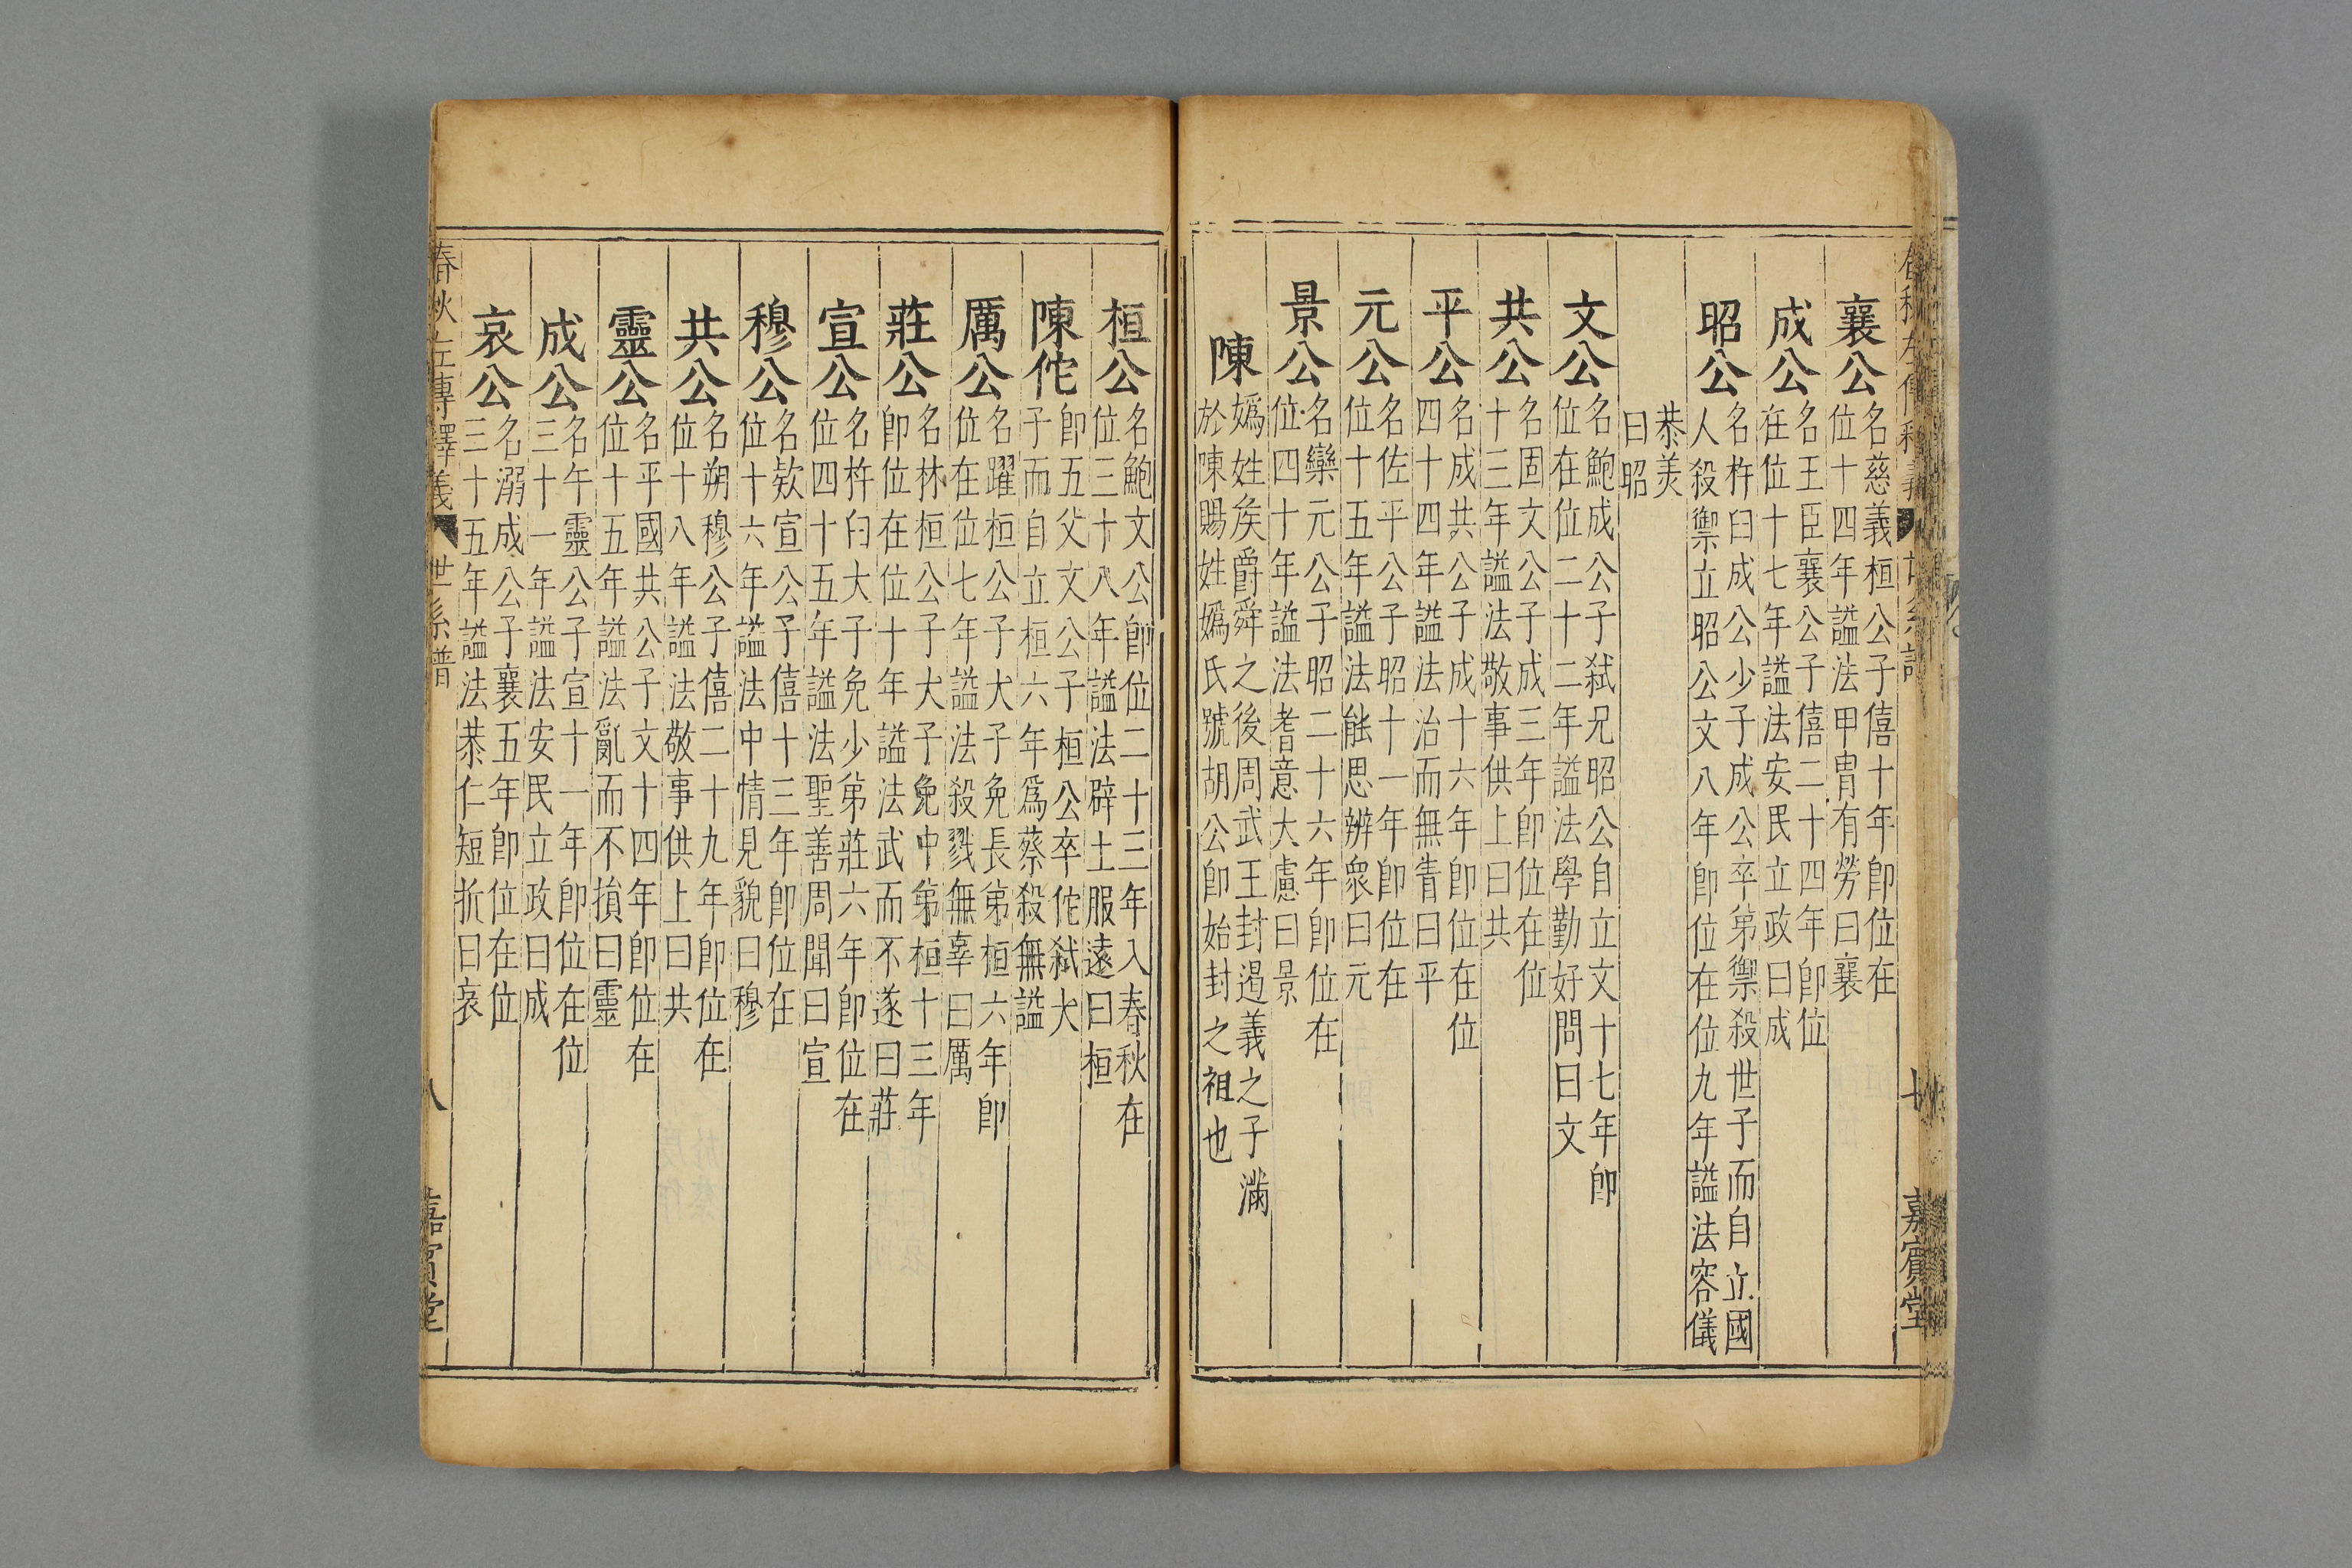 襄公名慈義桓公子僖十年卽位在
位十四年謚法甲冑有勞曰襄
成公名王臣襄公子僖二十四年卽位
在位十七年謚法安民立政曰成
昭公名杵臼成公少子成公卒弟禦殺世子而自立國
人殺禦立昭公文八年卽位在位九年謚法容儀
恭美
曰昭
文公名鮑成公子弑兄昭公自立文十七年卽
位在位二十二年謚法學勤好問曰文
共公名固文公子成三年卽位在位
十三年謚法敬事供上曰共
平公名成共公子成十六年卽位在位
四十四年謚法治而無眚曰平
元公名佐平公子昭十一年卽位在
位十五年謚法能思辨衆曰元
景公名欒元公子昭二十六年卽位在
位四十年謚法耆意大慮曰景
陳嬀姓矦爵舜之後周武王封遏義之子滿
於陳賜姓嬀氏號胡公卽始封之祖也
桓公名鮑文公卽位二十三年入春秋在
位三十八年謚法辟土服遠曰桓
陳佗卽五父文公子桓公卒佗弑大
子而自立桓六年爲蔡殺無謚
厲公名躍桓公子大子免長弟桓六年卽
位在位七年謚法殺戮無辜曰厲
莊公名林桓公子大子免中弟桓十三年
卽位在位十年謚法武而不遂曰莊
宣公名杵臼大子免少弟莊六年卽位在
位四十五年謚法聖善周聞曰宣
穆公名欵宣公子僖十三年卽位在
位十六年謚法中情見貌曰穆
共公名朔穆公子僖二十九年卽位在
位十八年謚法敬事供上曰共
靈公名平國共公子文十四年卽位在
位十五年謚法亂而不損曰靈
成公名午靈公子宣十一年卽位在位
三十一年謚法安民立政曰成
哀公名溺成公子襄五年卽位在位
三十五年謚法恭仁短折曰哀
春秋左傳釋義 世系譜 八 嘉賓堂